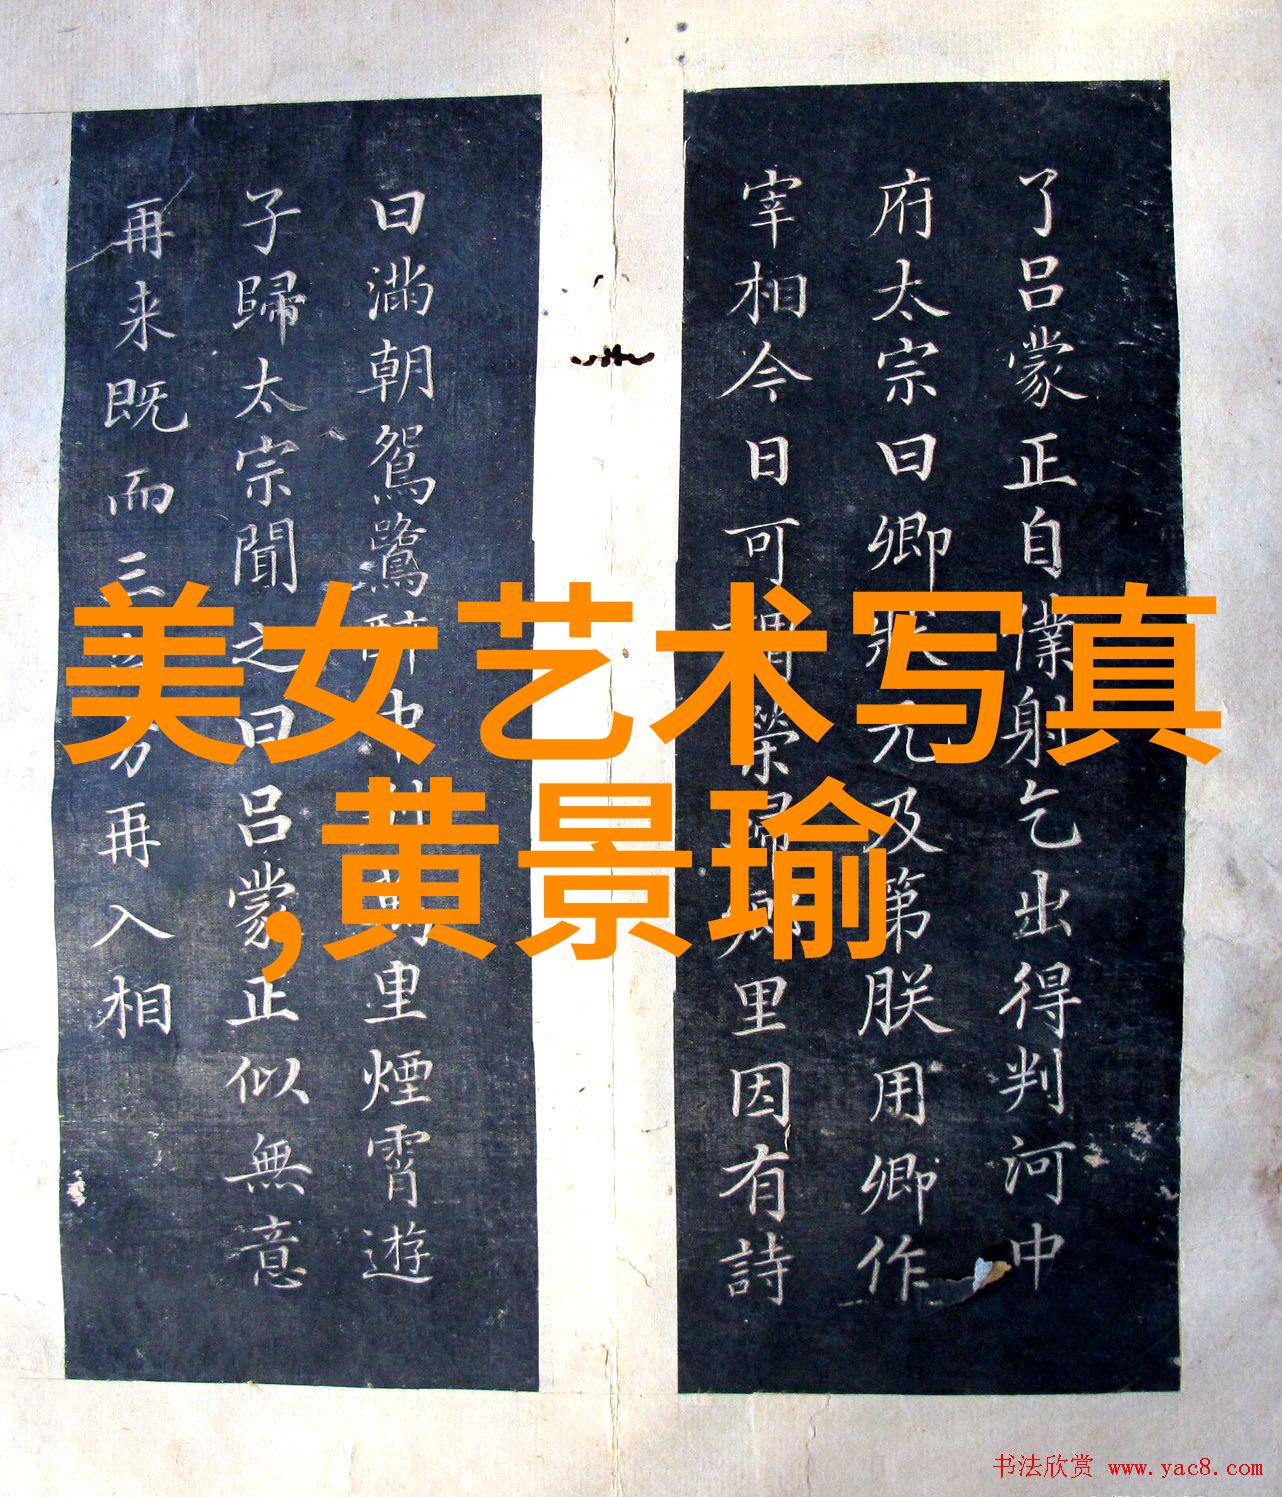 了吕蒙正自僕射乞出得判河中
府太宗曰卿状元及第朕用卿作
宰相今日可謂榮歸鄉里因有詩
曰滿朝鴛鷺醉中
里煙霄遊
子歸太宗聞之曰吕蒙正似無意
再来既而三
方再入相
美女艺术写真
,黄景瑜
书法欣赏 www.yac8.com